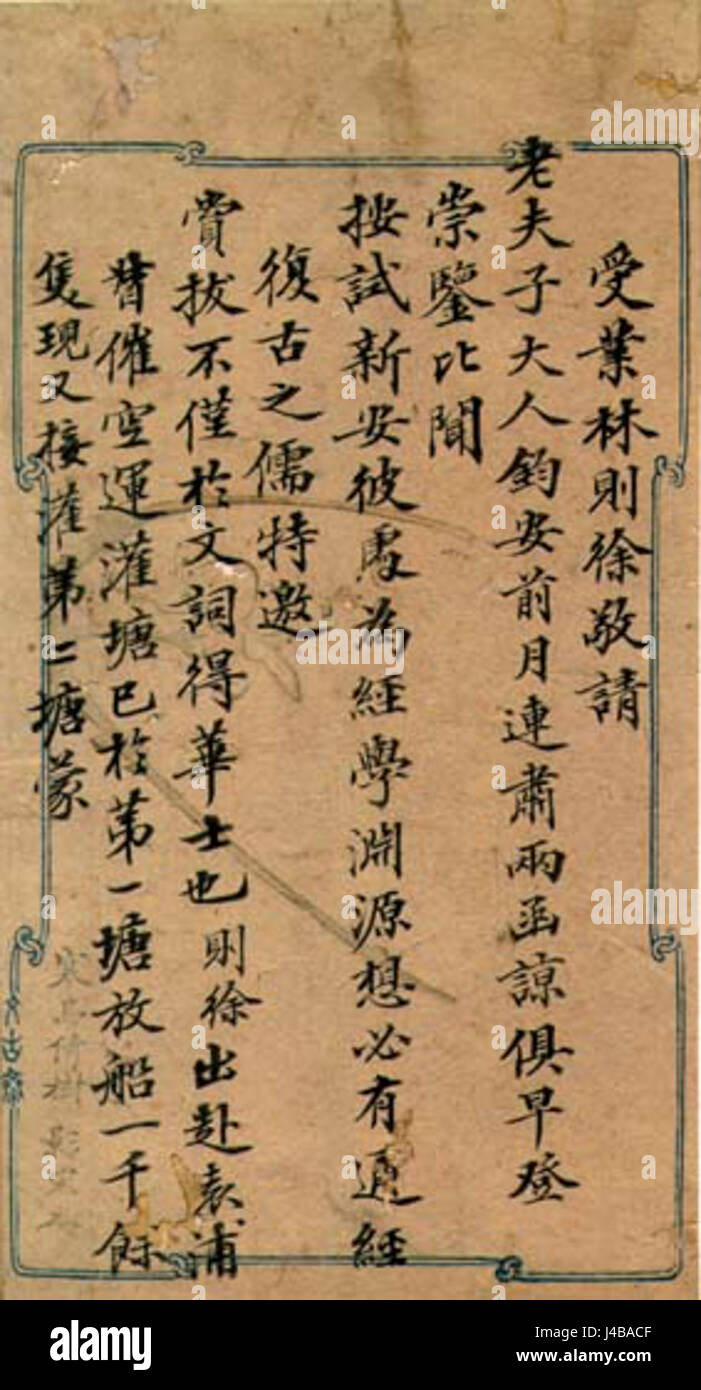 受業林則徐敬請
老夫子大人鈞安前月連肅兩函諒俱早登
崇鑒比聞
按試新安彼處為經學淵源想必有通經
復古之儒特邀
賞拔不僅於文詞得華士也則徐出赴袁浦
督催空運灌塘已於第一塘放船一千餘
隻現又接灌第二塘蒙
alamy
Image ID: J4BACF
www.alamy.com